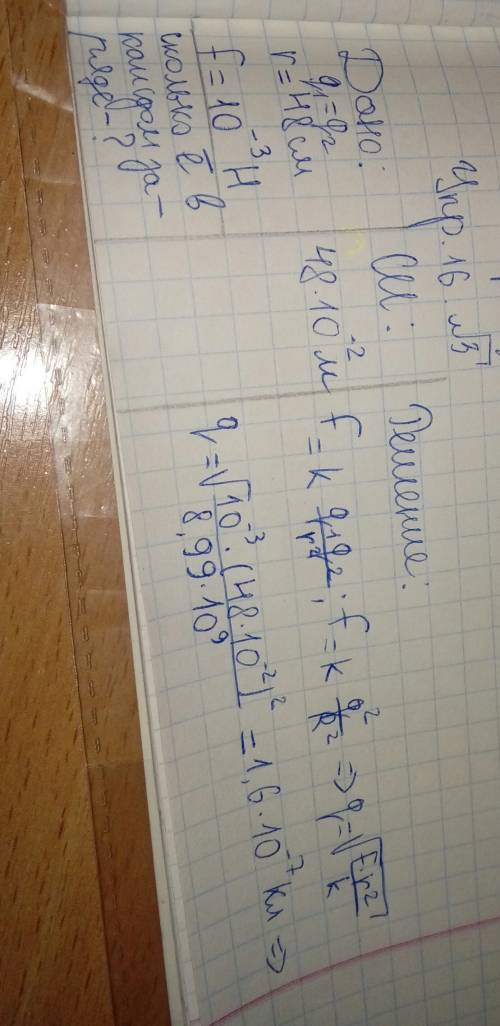 Упр. 16. №3
Дано:
q₁=q₂
r=48 см
f=10⁻³Н
сколько ē в
каждом за-
ряде-?
СИ:
48·10⁻² м
Решение:
f=k q₁q₂/r²; f=k q²/R² => q=√(F·r²/k)
q=√(10⁻³·(48·10⁻²)²/8,99·10⁹) =1,6·10⁻⁷ кл =>